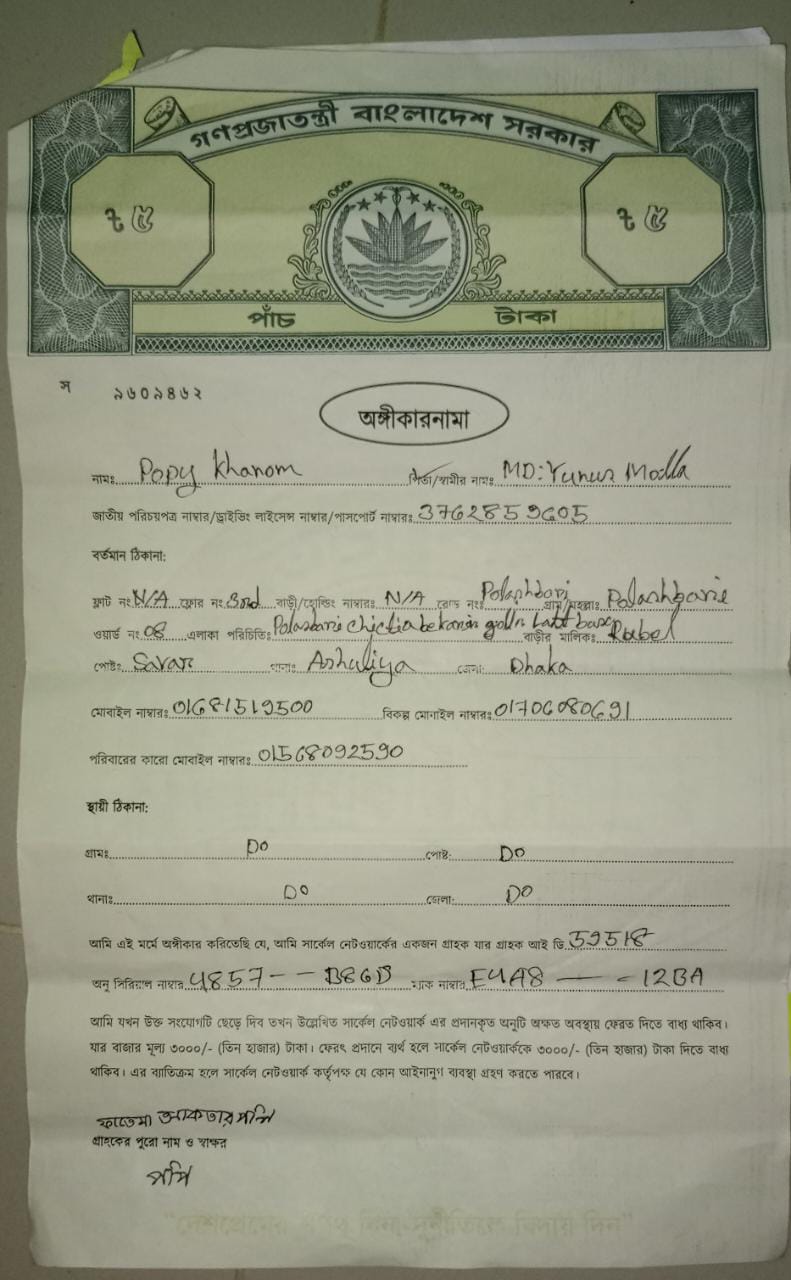 গণপ্রজাতন্ত্রী বাংলাদেশ সরকার
৳ ৫ ৳ ৫
পাঁচ টাকা
স ৯৬০৯৪৬২
অঙ্গীকারনামা
নামঃ Popy Khanom পিতা/স্বামীর নামঃ MD: Yunus Molla
জাতীয় পরিচয়পত্র নাম্বার/ড্রাইভিং লাইসেন্স নাম্বার/পাসপোর্ট নাম্বারঃ 3762859605
বর্তমান ঠিকানা:
ফ্লাট নং N/A ফ্লোর নং 3rd বাড়ী/হোল্ডিং নাম্বারঃ N/A রোড নংঃ Polashbari গ্রাম/মহল্লাঃ Polashbarie
ওয়ার্ড নং 08 এলাকা পরিচিতিঃ বাড়ীর মালিকঃ Rubel
পোষ্টঃ Savar থানাঃ Ashuliya জেলা: Dhaka
মোবাইল নাম্বারঃ 01681519500 বিকল্প মোবাইল নাম্বারঃ 01706080691
পরিবারের কারো মোবাইল নাম্বারঃ 01568092590
স্থায়ী ঠিকানা:
গ্রামঃ Do পোষ্ট: Do
থানাঃ Do জেলা: Do
আমি এই মর্মে অঙ্গীকার করিতেছি যে, আমি সার্কেল নেটওয়ার্কের একজন গ্রাহক যার গ্রাহক আই ডি 59518
অনু সিরিয়াল নাম্বার 4857 - - B86D ম্যাক নাম্বার E4A8 — - 12BA
আমি যখন উক্ত সংযোগটি ছেড়ে দিব তখন উল্লেখিত সার্কেল নেটওয়ার্ক এর প্রদানকৃত অনুটি অক্ষত অবস্থায় ফেরত দিতে বাধ্য থাকিব।
যার বাজার মূল্য ৩০০০/- (তিন হাজার) টাকা। ফেরৎ প্রদানে ব্যর্থ হলে সার্কেল নেটওয়ার্ককে ৩০০০/- (তিন হাজার) টাকা দিতে বাধ্য
থাকিব। এর ব্যাতিক্রম হলে সার্কেল নেটওয়ার্ক কর্তৃপক্ষ যে কোন আইনানুগ ব্যবস্থা গ্রহণ করতে পারবে।
ফাতেমা আকতার পপি
গ্রাহকের পুরো নাম ও স্বাক্ষর
পপি